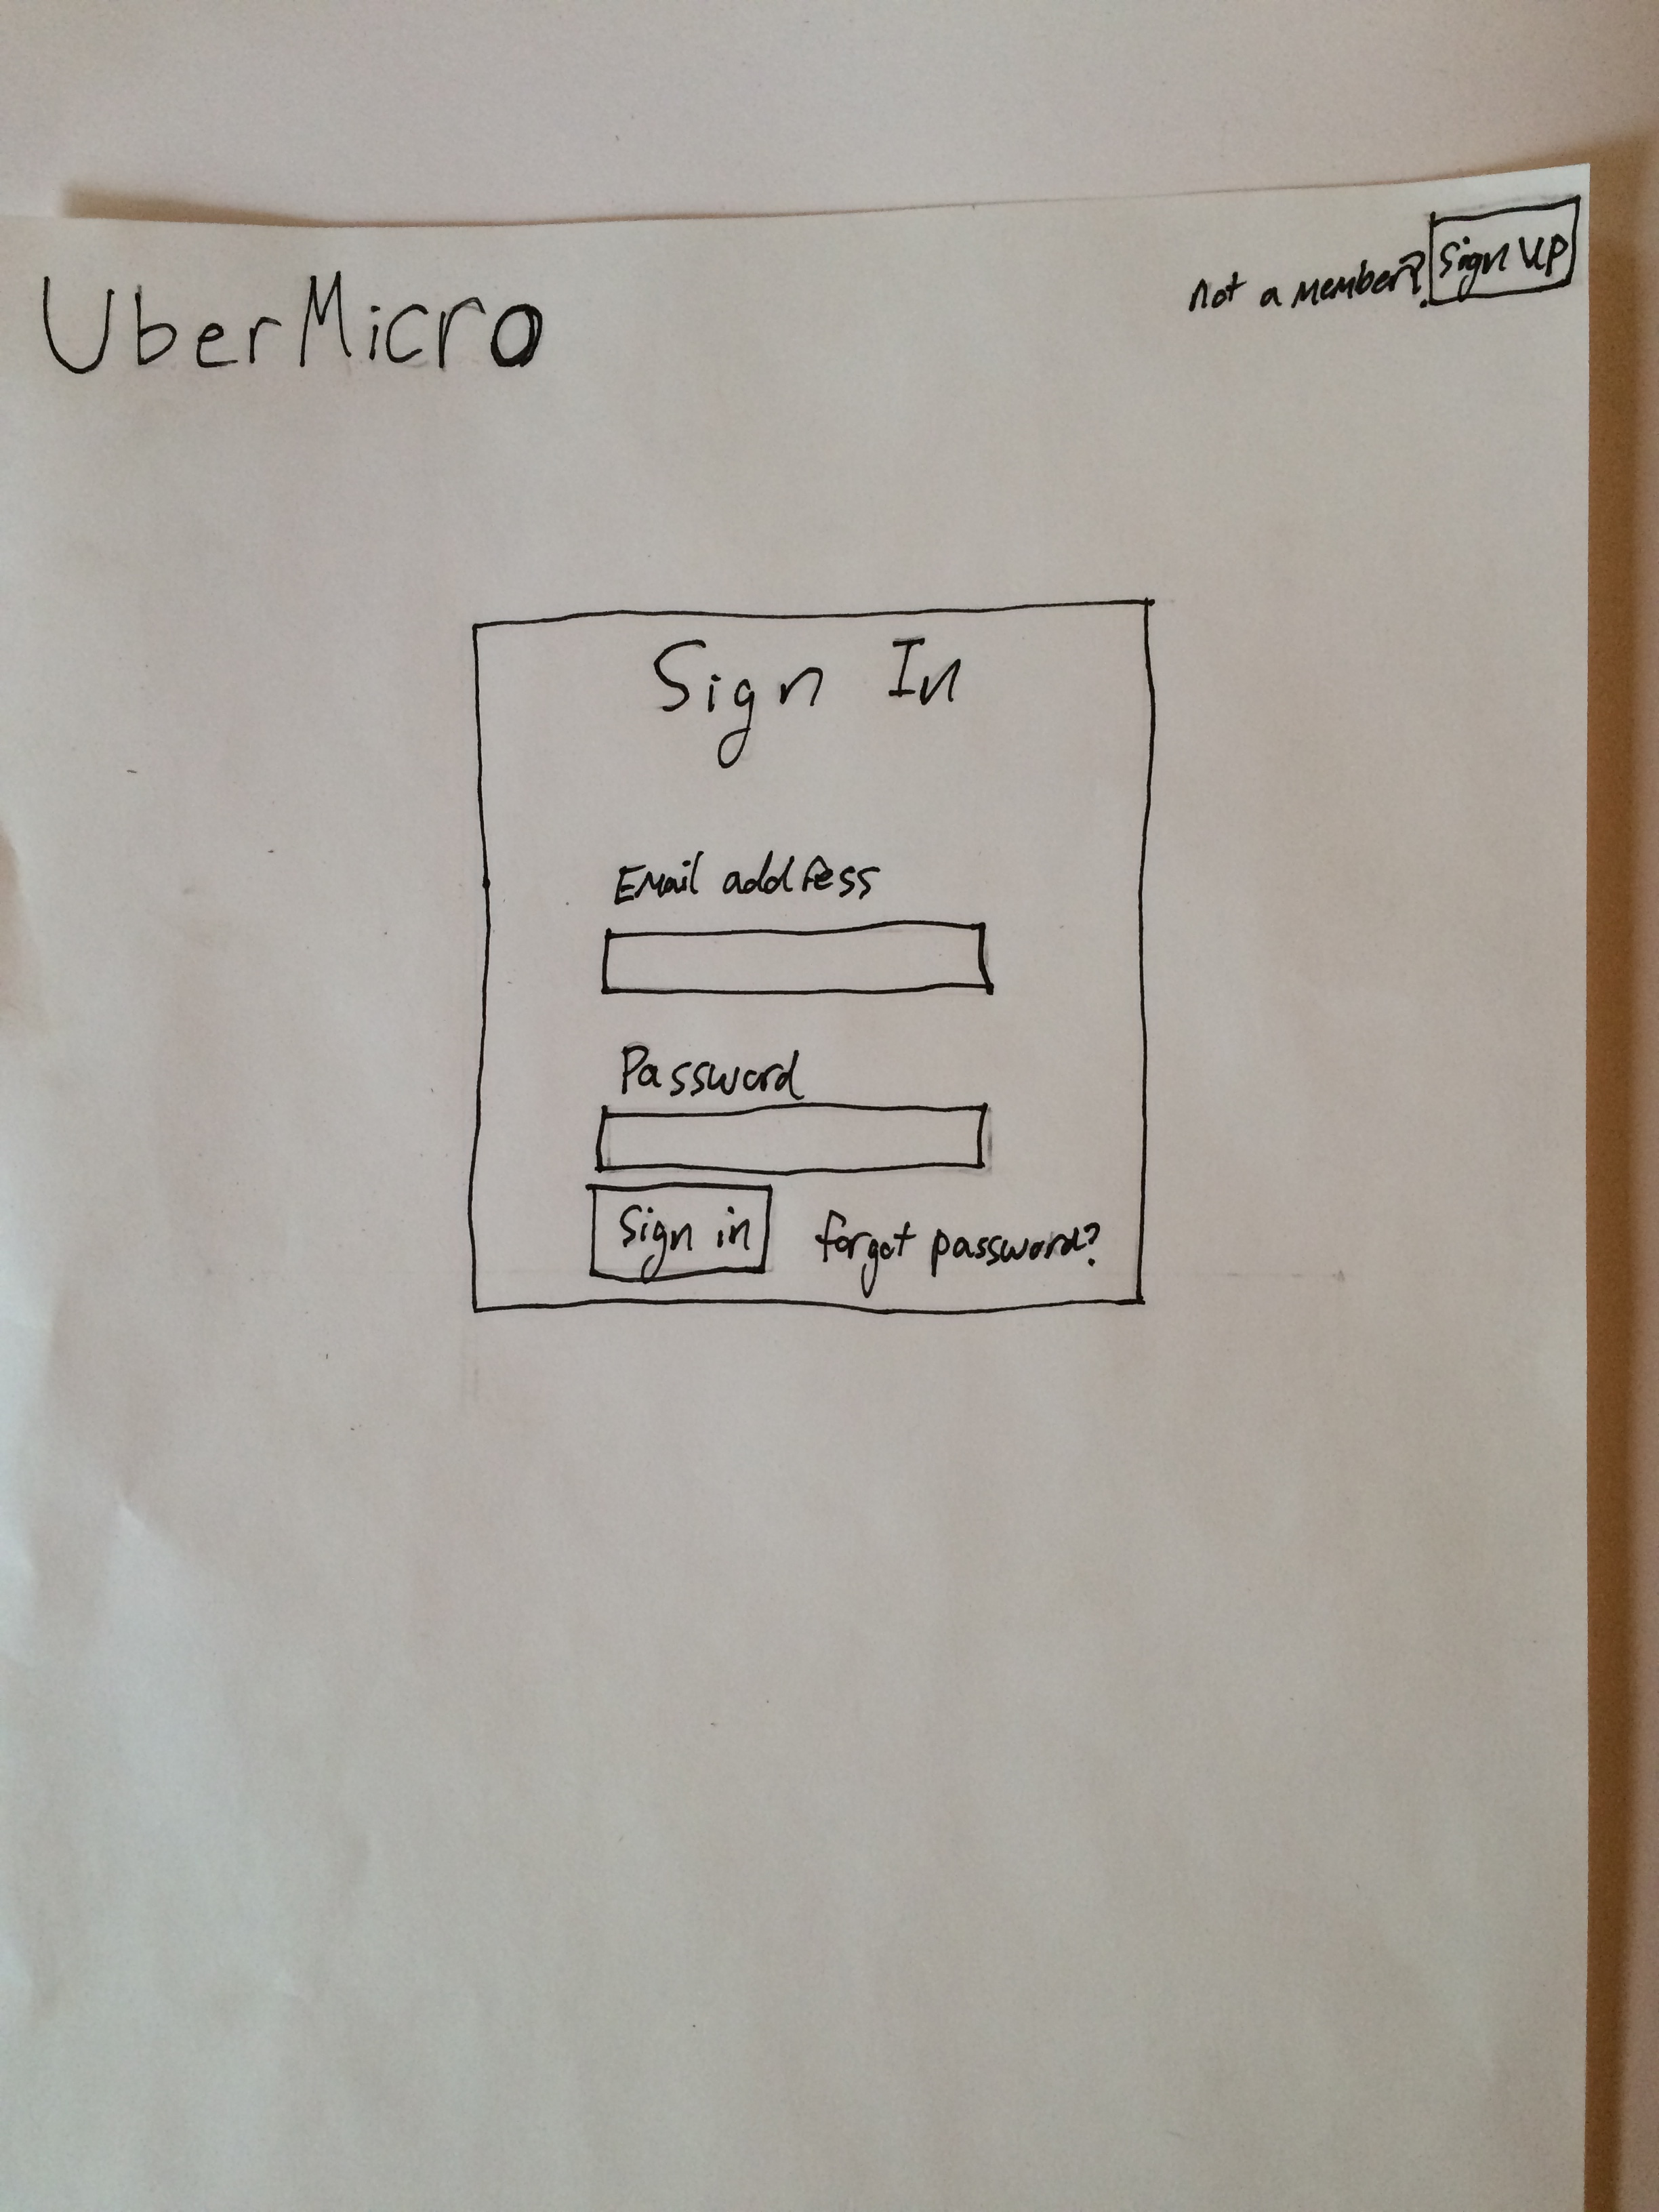 UberMicro
not a member? Sign Up
Sign In
Email address
Password
Sign in forgot password?